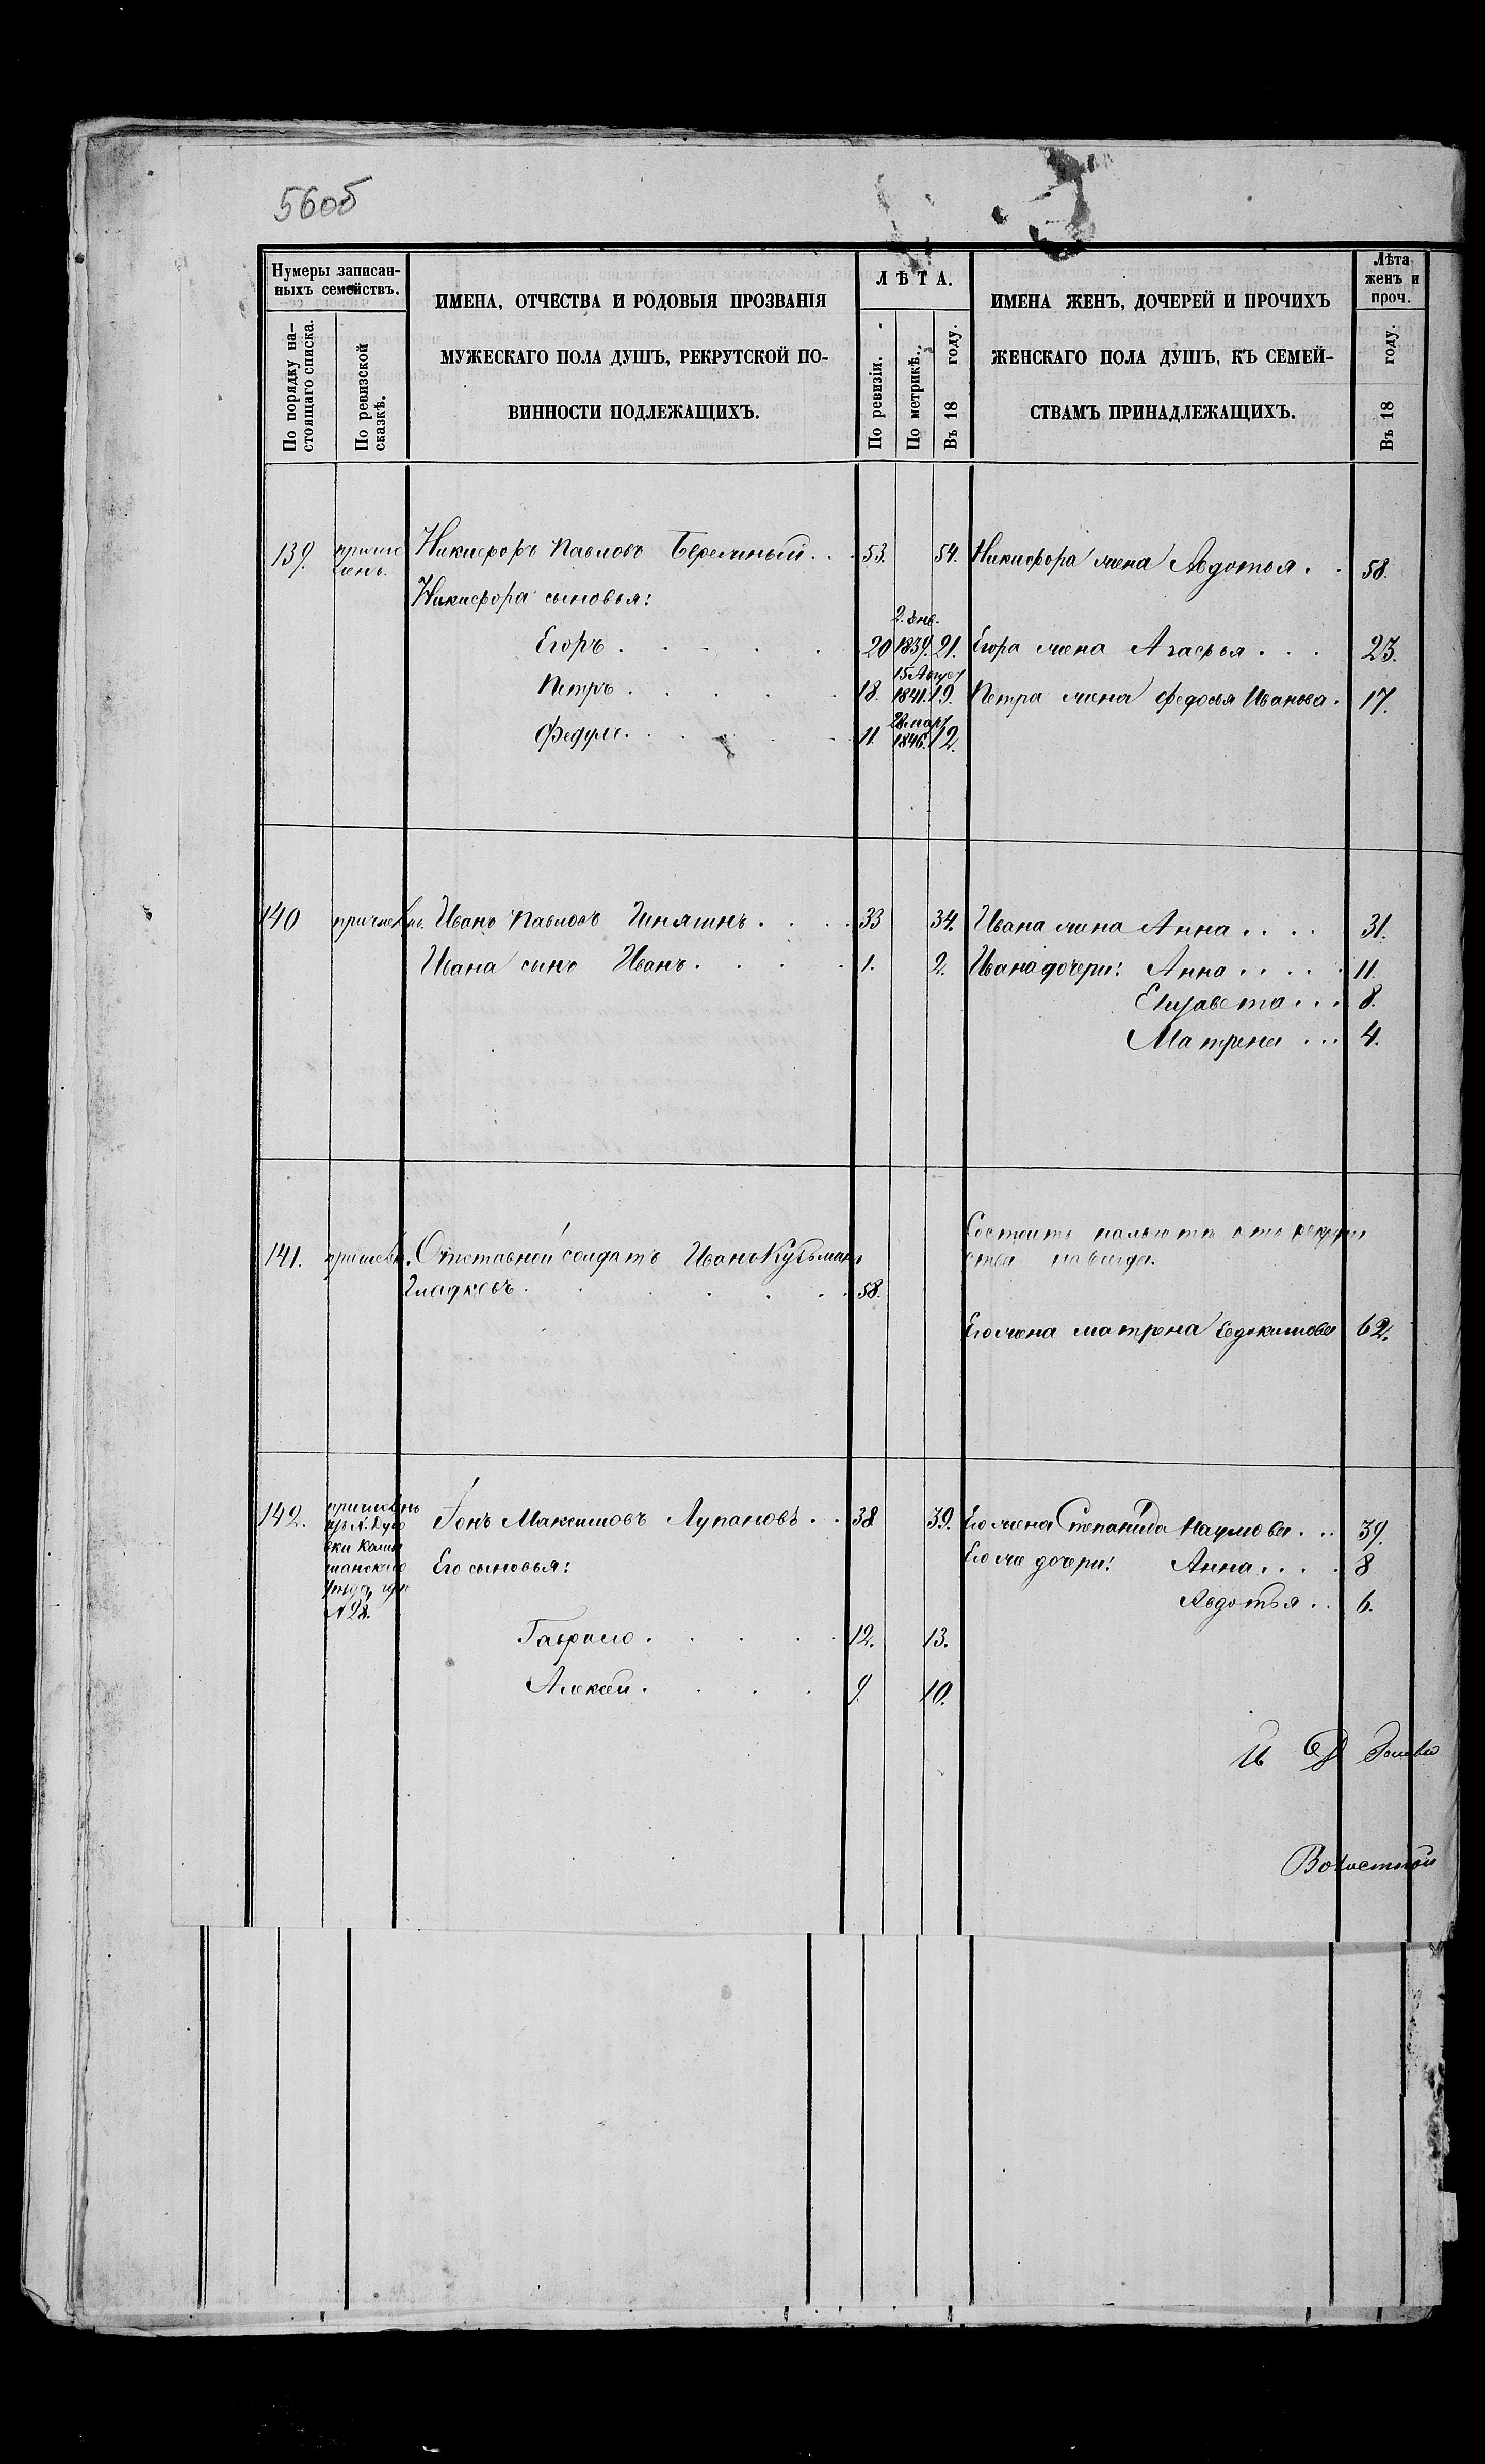 560б
Нумеры записан-
ныхъ семействъ.
По порядку на-
стоящаго списка.
По ревизской
сказкѣ.
ИМЕНА, ОТЧЕСТВА И РОДОВЫЯ ПРОЗВАНІЯ
МУЖЕСКАГО ПОЛА ДУШЪ, РЕКРУТСКОЙ ПО-
ВИННОСТИ ПОДЛЕЖАЩИХЪ.
ЛѢТА.
По ревизіи.
По метрикѣ.
Въ 18 году.
ИМЕНА ЖЕНЪ, ДОЧЕРЕЙ И ПРОЧИХЪ
ЖЕНСКАГО ПОЛА ДУШЪ, КЪ СЕМЕЙ-
СТВАМЪ ПРИНАДЛЕЖАЩИХЪ.
Лѣта
женъ и
проч.
Въ 18 году.
139. причис
ленъ. Никифоръ Павловъ 53. 54. Никифора жена Авдотья 58.
Никифора сыновья:
Егоръ 20 2. Енв. 1839. 21. Егора жена Агафья 23.
Петръ 18. 15 Август 1841. 19. Петра жена Федосья Иванова 17.
Федулъ 11. 28. март 1846. 12.
140 причислен. Иванъ Павловъ 33 34. Ивана жена Анна 31.
Ивана сынъ Иванъ 1. 2. Ивана дочери: Анна 11.
Елизавета 8.
Матрена 4.
Состоитъ
141. причислен. Отставній солдатъ Иванъ Кузьминъ
Гладковъ 58.
Его жена Матрена Евдокимова 62.
142. причисленъ
изъ п. Дубо
вки Камы
шанскаго
уѣзда, изъ
№ 28.
Іонъ Максимовъ Лупановъ 38 39. Его жена Степанида Наумова 39.
Его сыновья: Его же дочери: Анна 8
Авдотья 6.
Гаврило 12. 13.
Алексей 9. 10.
И Д Голова
Волостной